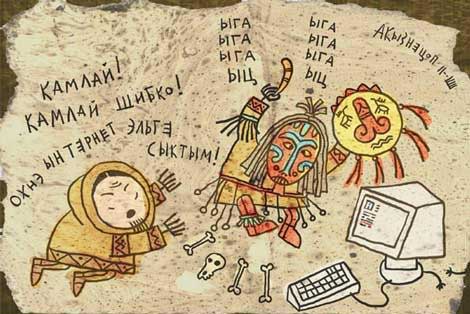 КАМЛАЙ!
КАМЛАЙ ШИБКО!
ОХНЭ ЫНТЕРНЕТ ЭЛЬГЭ
СЫКТЫМ!
ЫГА
ЫГА
ЫГА
ЫЦ
ЫГА
ЫГА
ЫГА
ЫЦ